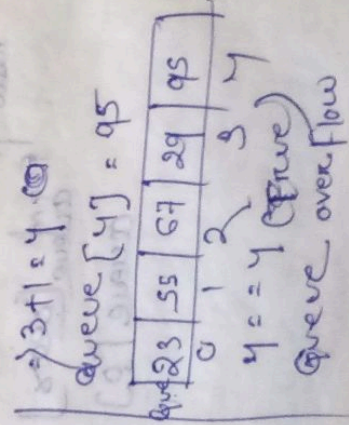 => 3+1 = 4
Queue [4] = 95
Que 23 55 67 29 95
0 1 2 3 4
4 == 4 (True)
Queue over flow